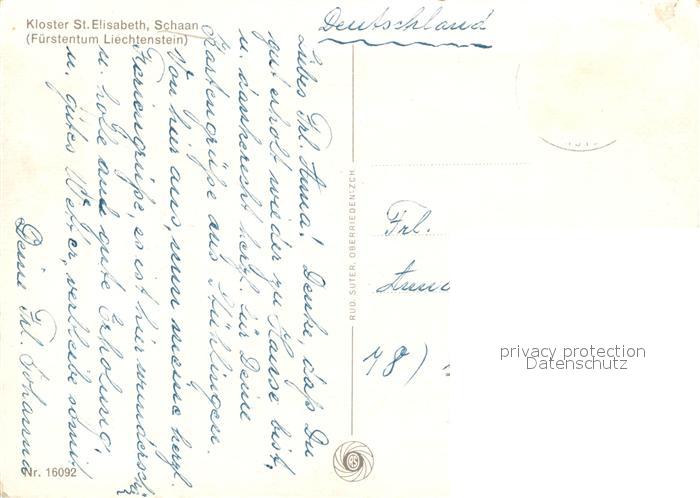 Kloster St. Elisabeth, Schaan
(Fürstentum Liechtenstein)
Deutschland
Liebes Frl. Anna! Denke, daß Du
gut erholt wieder zu Hause bist,
u. danke recht herzl. für Deine
Kartengrüße aus Stühlingen.
Von hier aus, nun meine herzl.
Feriengrüße, es ist hier wunderschön
u. hole auch gute Erholung,
u. gutes Wetter, verbleibe somit
Deine Frl. Johanna
RUD. SUTER, OBERRIEDEN-ZCH.
Frl.
Anna
78)
privacy protection
Datenschutz
Nr. 16092